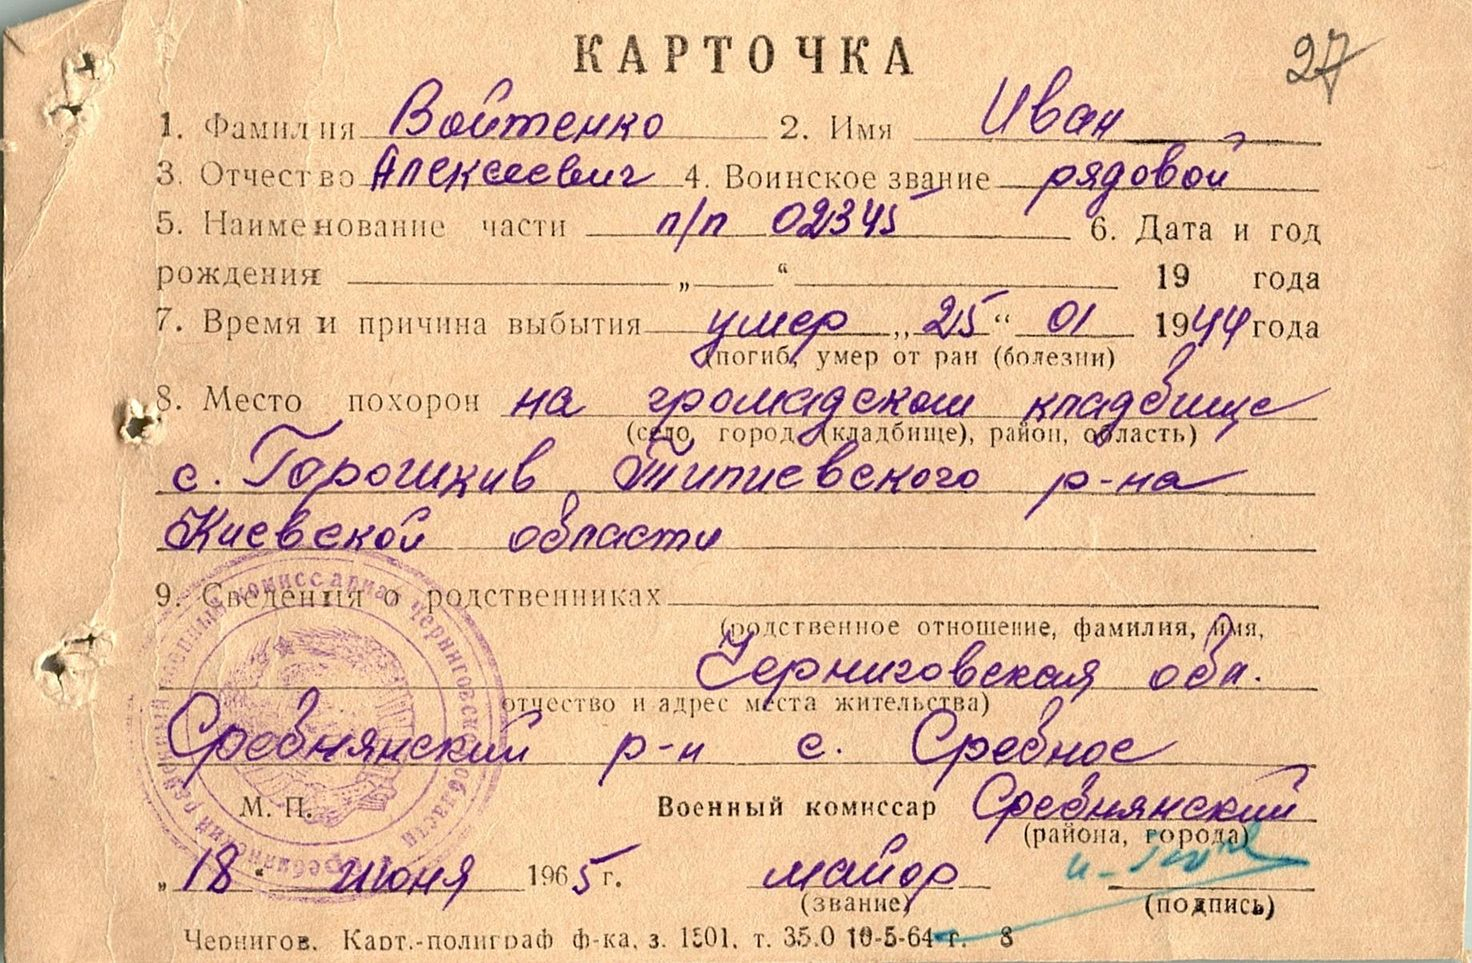 КАРТОЧКА
27
1. Фамилия Войтенко 2. Имя Иван
3. Отчество Алексеевич 4. Воинское звание рядовой
5. Наименование части п/п 02345 6. Дата и год
рождения „ “ 19 года
7. Время и причина выбытия умер „25“ 01 1944 года
(погиб, умер от ран (болезни)
8. Место похорон на громадском кладбище
(село, город (кладбище), район, область)
с. Горошкив Типиевского р-на
Киевской области
9. Сведения о родственниках
(родственное отношение, фамилия, имя,
Черниговская обл.
отчество и адрес места жительства)
Сребнянский р-н с. Сребное
М. П. Военный комиссар Сребнянский
(района, города)
„18“ июня 1965 г. майор
(звание) (подпись)
Чернигов. Карт.-полиграф ф-ка, з. 1501. т. 35.0 10-5-64 г. 8
комиссариат Черниговской области